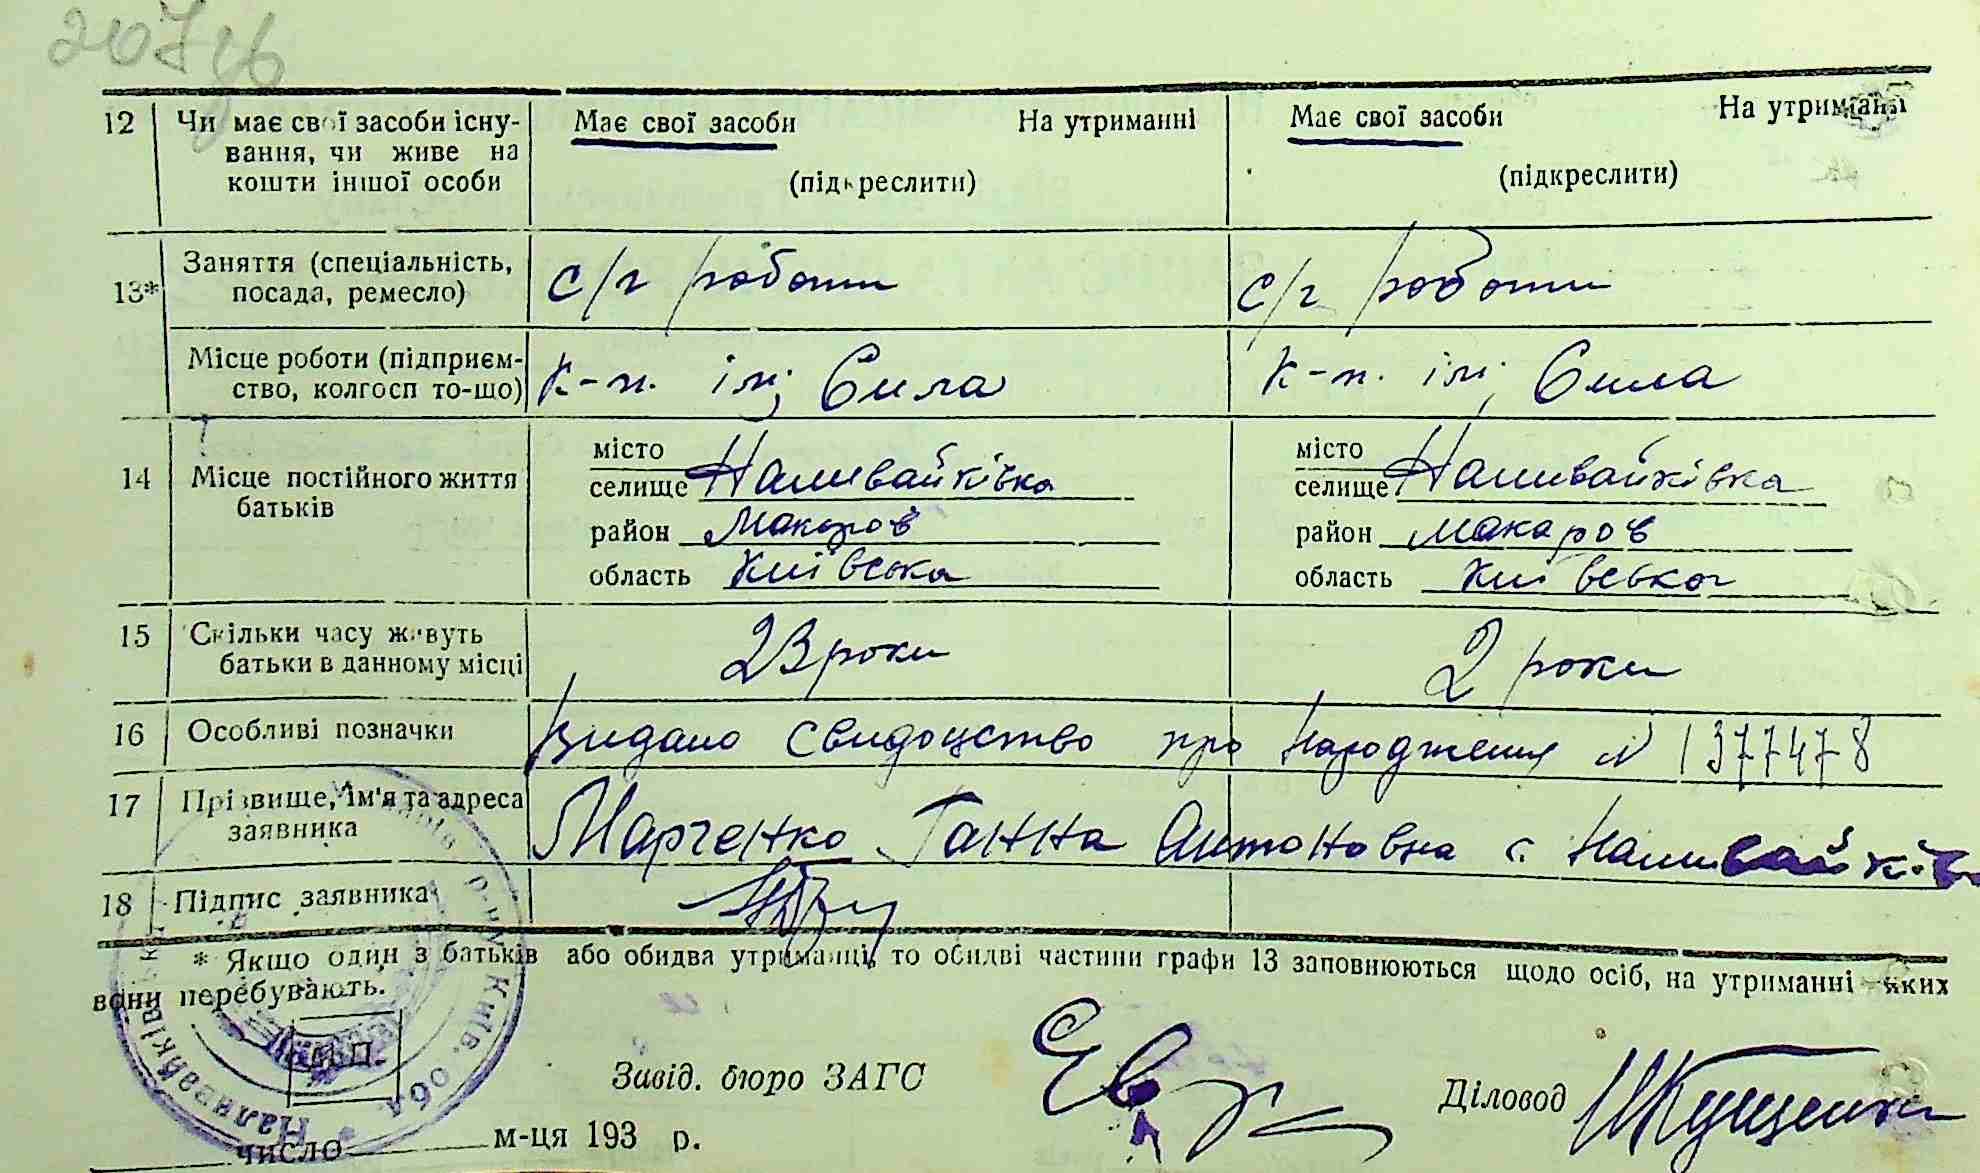 12 Чи має свої засоби існу- Має свої засоби На утриманні Має свої засоби На утриманні
вання, чи живе на
кошти іншої особи (підкреслити) (підкреслити)
13* Заняття (спеціальність, с/г роботи с/г роботи
посада, ремесло)
Місце роботи (підприєм- к-п. ім; Сила к-п. ім; Сила
ство, колгосп то-що)
14 Місце постійного життя місто місто
батьків селище Наливайківка селище Наливайківка
район Макаров район Макаров
область Київська область Київська
15 Скільки часу живуть 23 роки 2 роки
батьки в данному місці
16 Особливі позначки Видано свидоцство про народження N 1377478
17 Прізвище, ім'я та адреса Марченко Ганна Антоновна с. Наливайків
заявника
18 Підпис заявника
* Якщо один з батьків або обидва утриманці, то обидві частини графи 13 заповнюються щодо осіб, на утриманні яких
вони перебувають.
М.П.
Завід. бюро ЗАГС Діловод
число м-ця 193 р.
р-ну Київ. обл.